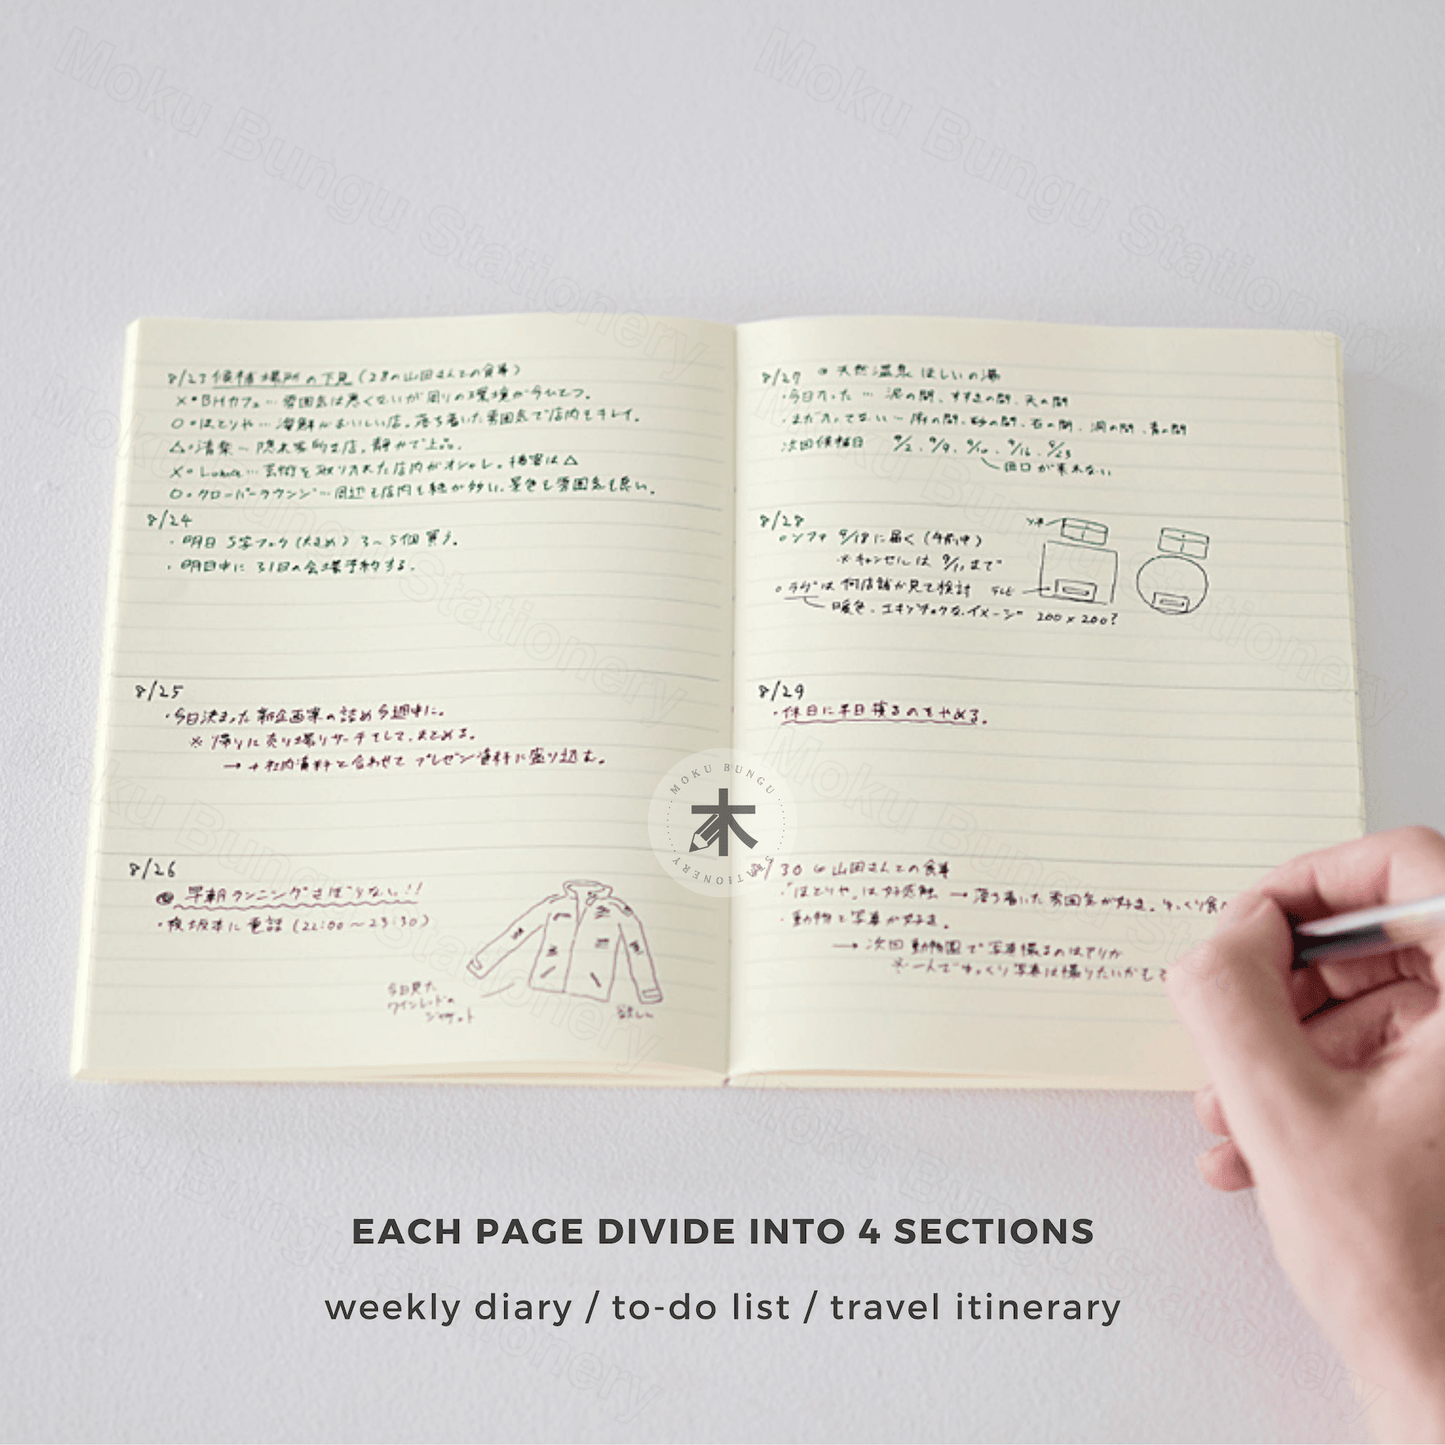 8/23 候補場所の下見 (28の山田さんとの食事)
×・BHカフェ… 雰囲気は悪くないが周りの環境が今ひとつ。
○・ほとりや… 海鮮がおいしい店。落ち着いた雰囲気で店内もキレイ。
△・清楽〜 隠れ家的な店。静かで上品。
×・… 芸術を取り入れた店内がオシャレ。接客は△
○・クローバーラウンジ… 周辺も店内も緑が多い。景色も雰囲気も良い。
8/24
・明日 宮フック (大きめ) 3〜5個買う。
・明日中に 31日の会場予約する。
8/25
・今日決まった新企画案の詰め今週中に。
※ 帰りに売り場リサーチをして、まとめる。
→ +社内資料と合わせて プレゼン資料に盛り込む。
8/26
早朝ランニングさぼらない!!
・夜坂本に電話 (22:00〜23:30)
今日見た
ワインレッドの
ジャケット
欲しい
8/27 天然温泉 ほしいの湯
・今日入った … 泥の間、すずきの間、天の間
・まだ入ってない〜 の間、砂の間、石の間、洞の間、青の間
次回候補日 9/2、9/9、9/10、9/16、9/23
田口が来れない
8/28
・ソファ 9/18に届く (午前中)
※キャンセルは 9/11まで
・ラグは 何店舗か見て検討
暖色、エキゾチックなイメージ 200×200?
8/29
・休日に平日寝るのをやめる。
8/30 山田さんとの食事
・「ほとりや」は好感触 → 落ち着いた雰囲気が好き。ゆっくり食べ
・動物と写真が好き。
→ 次回 動物園で写真撮るのはどうか
※一人でゆっくり写真は撮りたいかも
MOKU BUNGU
木
STATIONERY
Moku Bungu Stationery
EACH PAGE DIVIDE INTO 4 SECTIONS
weekly diary / to-do list / travel itinerary